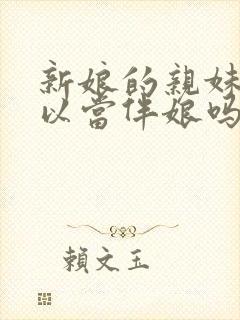 新娘的親妹
以當伴娘吗
賴文玉